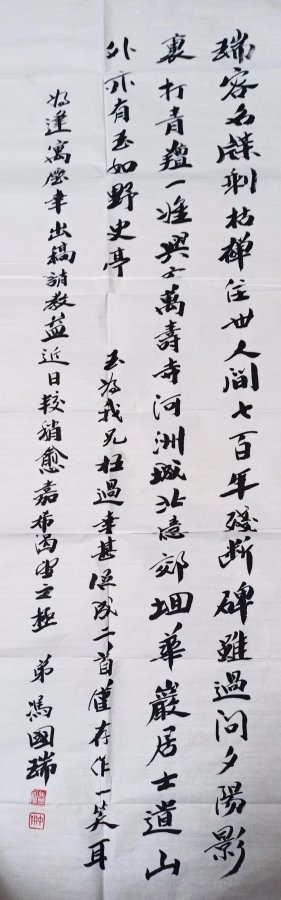 瑞容名牒剩枯禅住世人間七百年殘斷碑雖過問夕陽影
裏打青氊一准與士萬壽寺河洲城北憶郊坰華嚴居士道山
外亦有孟如野史亭
玉為我兄枉過幸甚促成二首僅存作一笑耳
為達寓座幸出稿請教益近日較稍愈嘉希渴望之極 弟馮國瑞